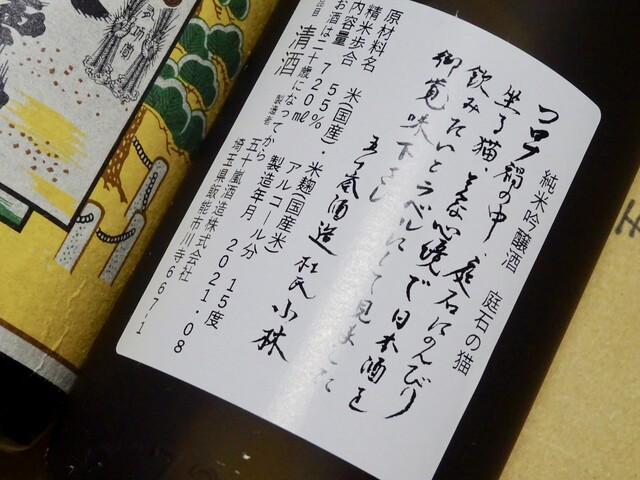 純米吟醸酒 庭石の猫
コロナ禍の中、庭石にのんびり
坐る猫、そんな心境で日本酒を
飲みたいとラベルにして見ました
御賞味下さい
五十嵐酒造 杜氏 小林
原材料名 米(国産)・米麹(国産米)
精米歩合 55% アルコール分 15度
内容量 720㎖ 製造年月 2021.08
お酒は二十歳になってから
清酒
製造者 五十嵐酒造株式会社
埼玉県飯能市川寺667-1